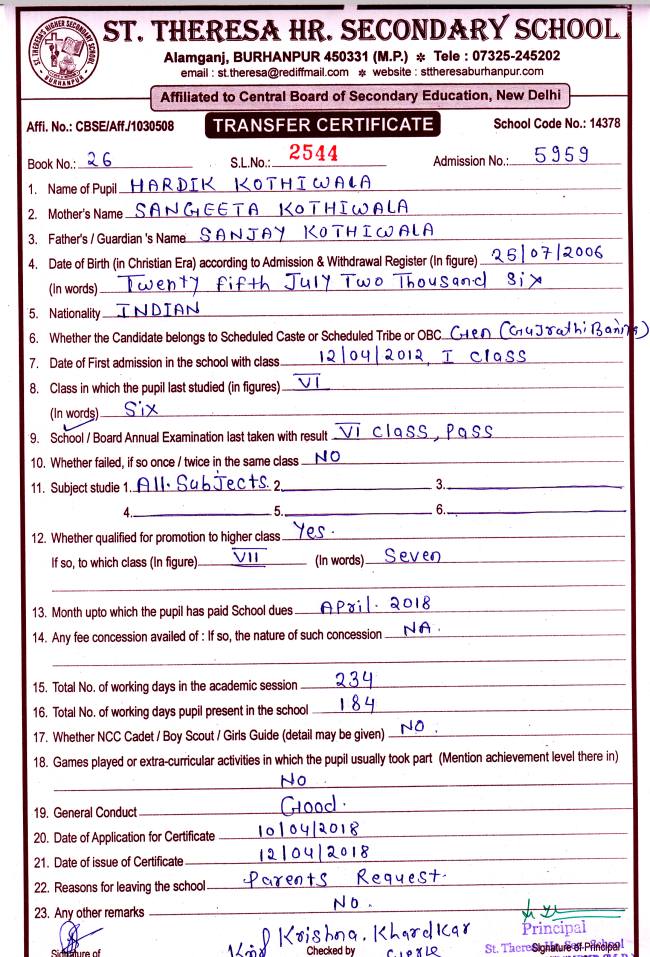 ST. THERESA HR. SECONDARY SCHOOL
Alamganj, BURHANPUR 450331 (M.P.) ✻ Tele : 07325-245202
email : st.theresa@rediffmail.com ✻ website : sttheresaburhanpur.com
Affiliated to Central Board of Secondary Education, New Delhi
Affi. No.: CBSE/Aff./1030508 TRANSFER CERTIFICATE School Code No.: 14378
Book No.: 26 S.L.No.: 2544 Admission No.: 5959
1. Name of Pupil HARDIK KOTHIWALA
2. Mother's Name SANGEETA KOTHIWALA
3. Father's / Guardian 's Name SANJAY KOTHIWALA
4. Date of Birth (in Christian Era) according to Admission & Withdrawal Register (In figure) 25/07/2006
(In words) Twenty fifth July Two Thousand Six
5. Nationality INDIAN
6. Whether the Candidate belongs to Scheduled Caste or Scheduled Tribe or OBC Gen (Gujrathi Baniya)
7. Date of First admission in the school with class 12/04/2012, I class
8. Class in which the pupil last studied (in figures) VI
(In words) Six
9. School / Board Annual Examination last taken with result VI class, pass
10. Whether failed, if so once / twice in the same class NO
11. Subject studie 1. All. Subjects. 2. 3.
4. 5. 6.
12. Whether qualified for promotion to higher class Yes.
If so, to which class (In figure) VII (In words) Seven
13. Month upto which the pupil has paid School dues April. 2018
14. Any fee concession availed of : If so, the nature of such concession NA.
15. Total No. of working days in the academic session 234
16. Total No. of working days pupil present in the school 184
17. Whether NCC Cadet / Boy Scout / Girls Guide (detail may be given) NO.
18. Games played or extra-curricular activities in which the pupil usually took part (Mention achievement level there in)
NO
19. General Conduct Good.
20. Date of Application for Certificate 10/04/2018
21. Date of issue of Certificate 12/04/2018
22. Reasons for leaving the school Parents Request.
23. Any other remarks No.
Krishna. Khardkar
Principal
Signature of Checked by Clerk St. Theresa Hr. Sec. School
Signature of Principal